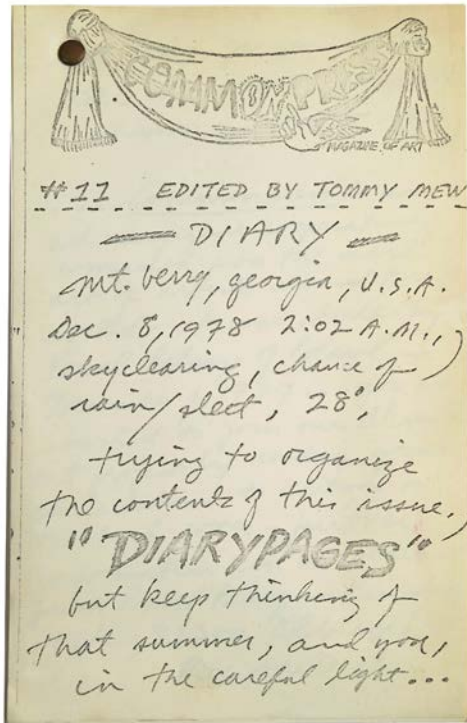 COMMONPRESS
MAGAZINE OF ART
#11 EDITED BY TOMMY MEW
DIARY
mt. berry, georgia, U.S.A.
Dec. 8, 1978 2:02 A.M.,
sky clearing, chance of
rain/sleet, 28°,
trying to organize
the contents of this issue,
"DIARYPAGES"
but keep thinking of
that summer, and you,
in the careful light...